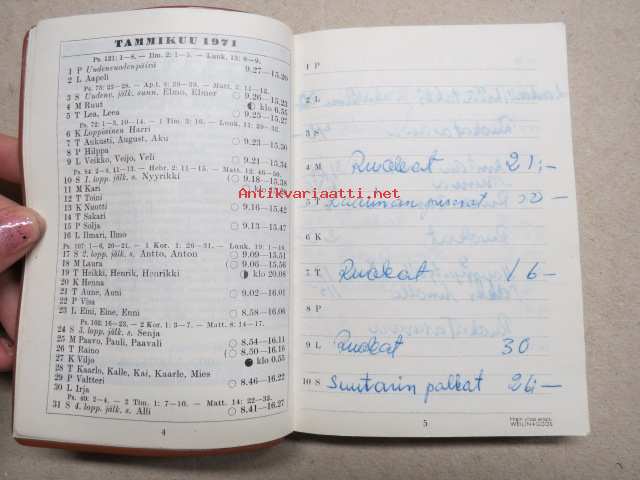 TAMMIKUU 1971
Ps. 121: 1—8. — Ilm. 2: 1—5. — Luuk. 13: 6—9.
1 P Uudenvuodenpäivä 9.27—15.20
2 L Aapeli
Ps. 73: 23—28. — Ap.t. 4: 23—29. — Matt. 2: 13—
3 S Uudenv. jälk. sunn. Elmo, Elmer 9.26—15.23
4 M Ruut klo 6.55
5 T Lea, Leea 9.25—15.26
Ps. 72: 1—3, 10—14. — 1 Tim. 3: 16. — Luuk. 11: 29—32.
6 K Loppiainen Harri
7 T Aukusti, August, Aku 9.23—15.
8 P Hilppa
9 L Veikko, Veijo, Veli 9.21—15.34
Ps. 84: 2—5, 11—13. — Hebr. 2: 11—15. — Matt. 12: 46—50.
10 S 1. lopp. jälk. s. Nyyrikki 9.18—15.38
11 M Kari klo
12 T Toini
13 K Nuutti 9.16—15.42
14 T Sakari
15 P Solja 9.13—15.47
16 L Ilmari, Ilmo
Ps. 107: 1—6, 20—21. — 1 Kor. 1: 26—31. — Luuk. 19: 1—10.
17 S 2. lopp. jälk. s. Antto, Anton 9.09—15.51
18 M Laura 9.06—15.56
19 T Heikki, Henrik, Henrikki klo 20.08
20 K Henna
21 T Aune, Auni 9.02—16.01
22 P Visa
23 L Eini, Eine, Enni 8.58—16.06
Ps. 102: 16—23. — 2 Kor. 1: 3—7. — Matt. 8: 14—17.
24 S 3. lopp. jälk. s. Senja
25 M Paavo, Pauli, Paavali 8.54—16.11
26 T Raino 8.50—16.16
27 K Viljo klo 0.55
28 T Kaarlo, Kalle, Kai, Kaarle, Mies
29 P Valtteri 8.46—16.22
30 L Irja
Ps. 40: 2—4. — 2 Tim. 1: 7—10. — Matt. 14: 22—33.
31 S 4. lopp. jälk. s. Alli 8.41—16.27
4
1 P
2 L
3 S
4 M Ruokat 21:—
5 T
6 K
7 T Ruokat 16—
8 P
9 L Ruokat 30
10 S Suutarin palkat 26:—
5
WEILIN+GÖÖS
Antikvariaatti.net